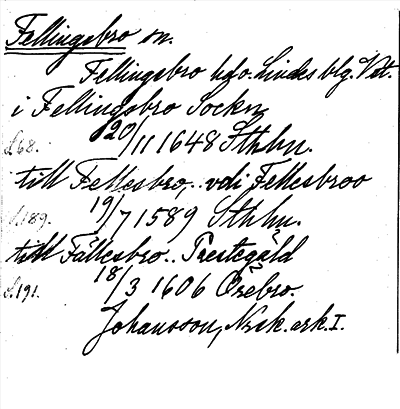 Fellingsbro sn.
Fellingsbro hfo. Lindes blg. Vstl.
i Fellingsbro Sockn
L68. 20/11 1648 Sthlm.
till Fellesbro,.. vdi Fellesbroo
L189. 19/7 1589 Sthlm.
till Fällesbro.. Prestegäld
L191. 18/3 1606 Örebro.
Johansson, Nzsk. ark. I.